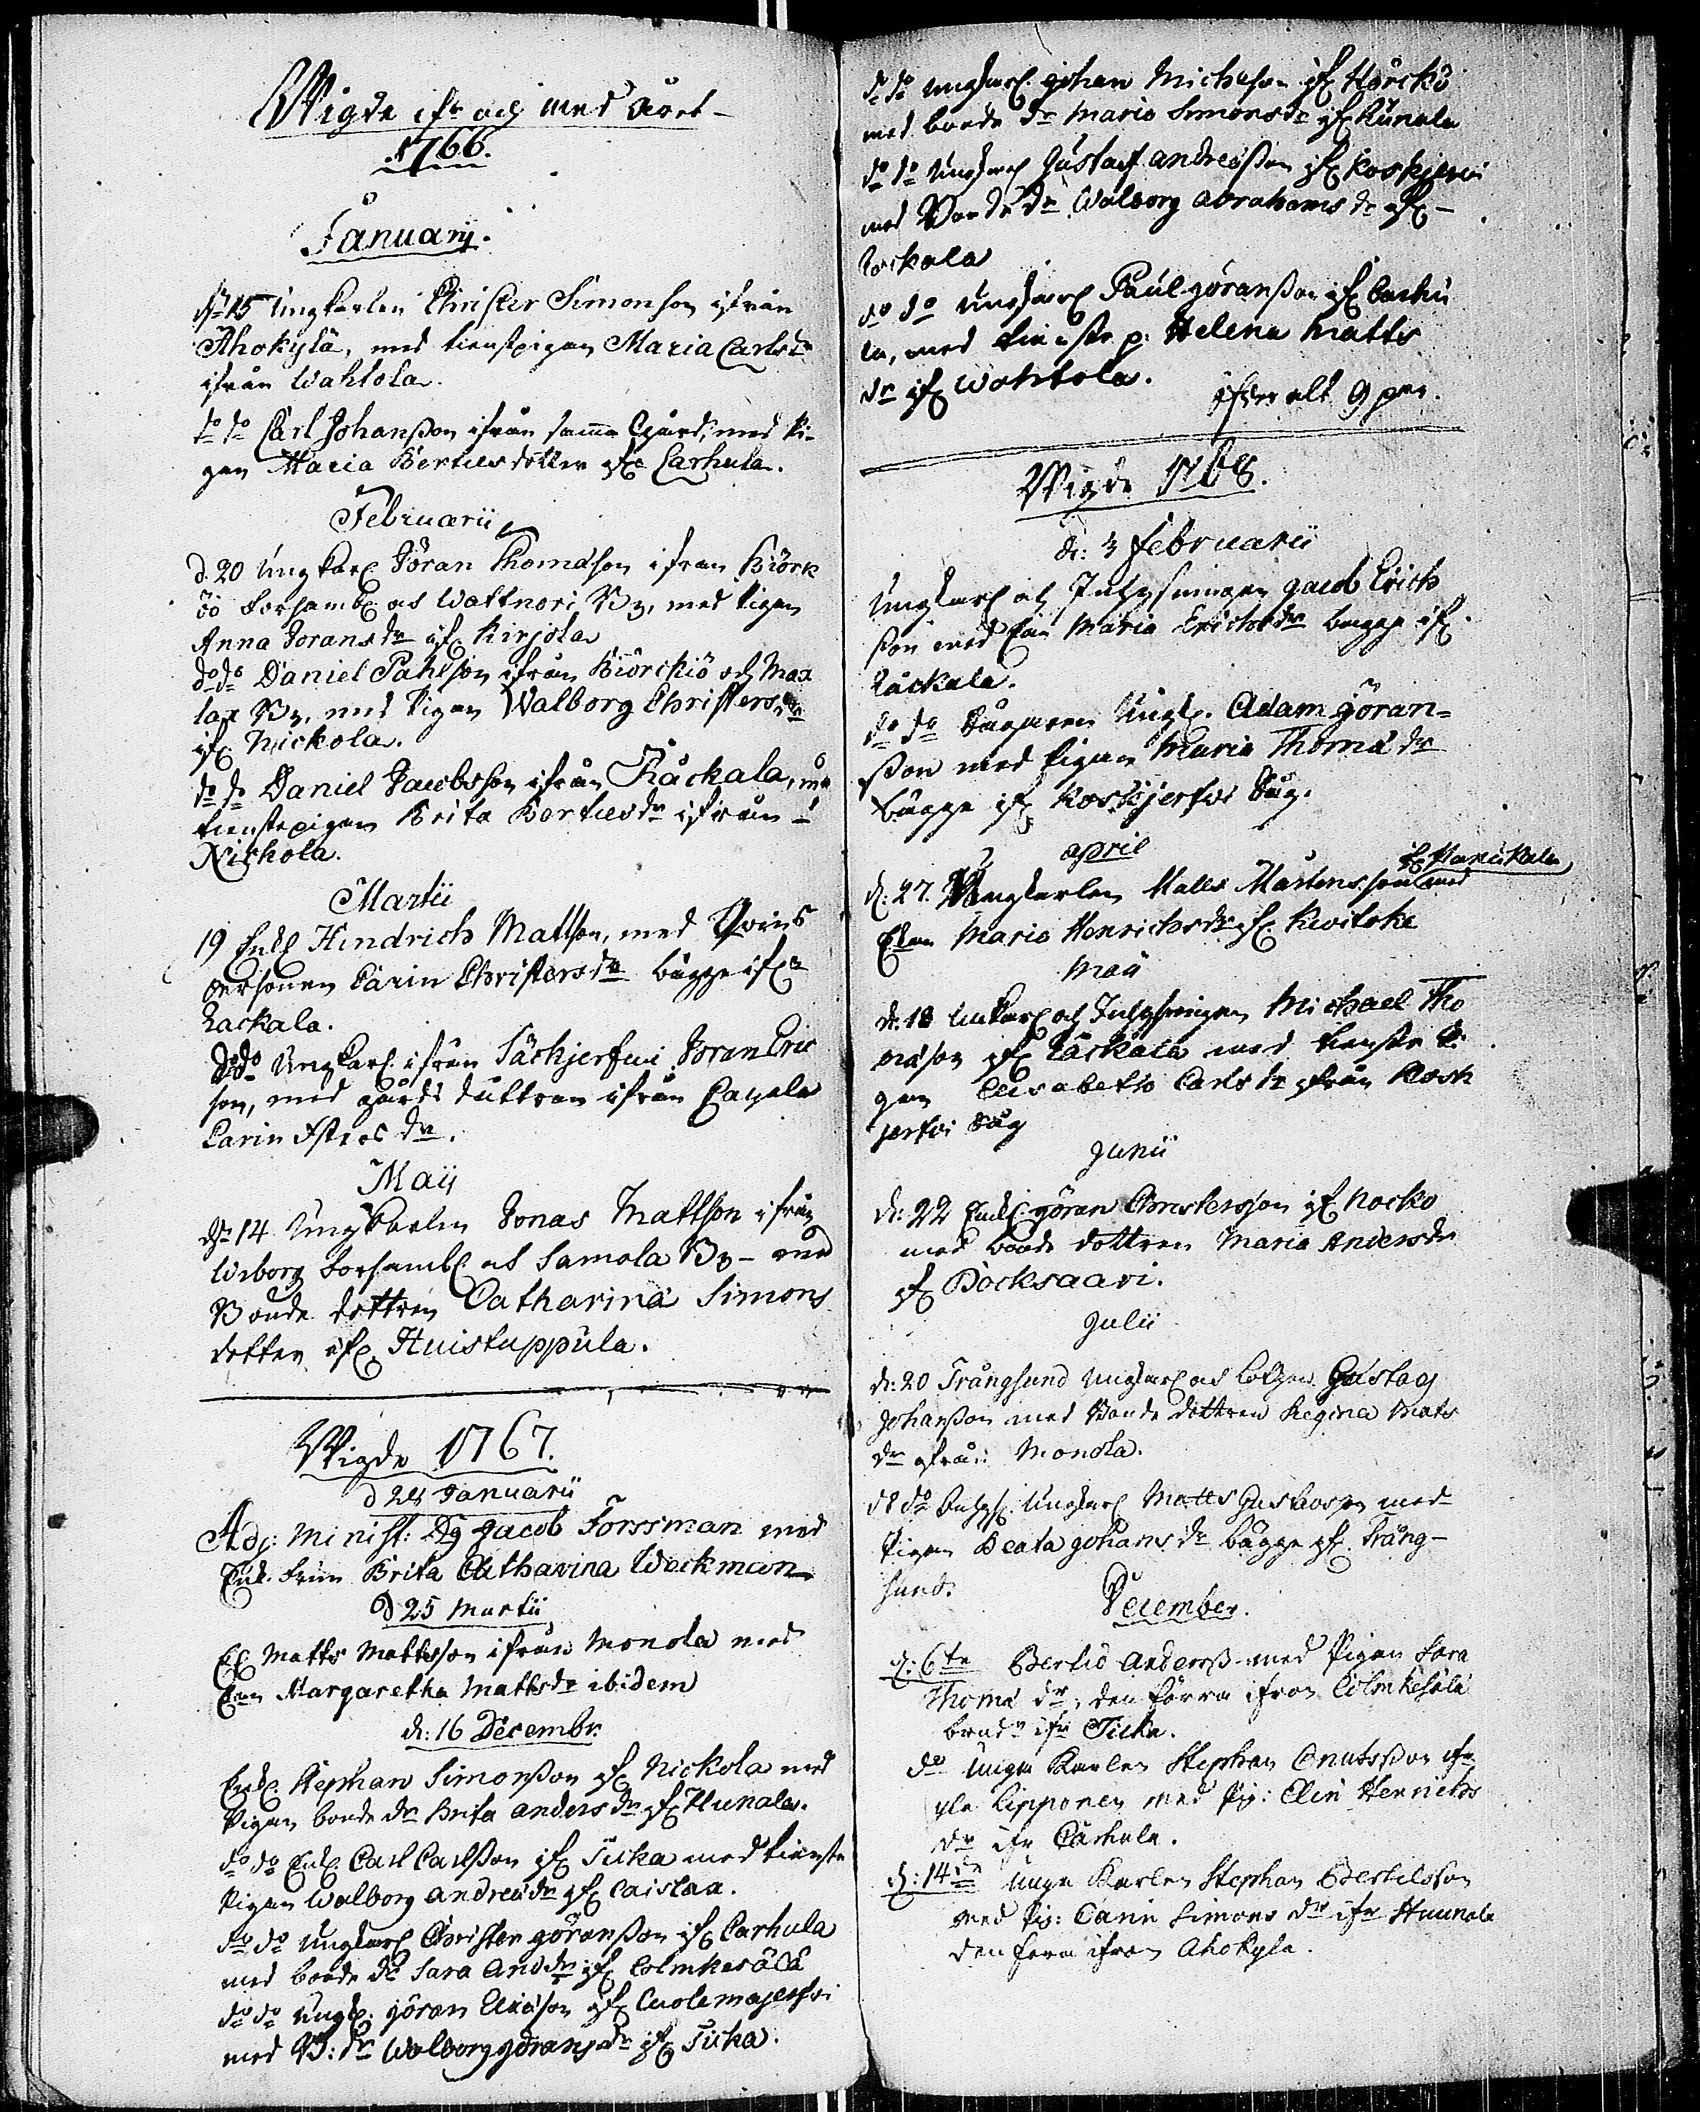 Wigde ifr och med året
1766.
Januarij.
dn 15 Ungkarlen Christer Simonson ifrån
Ahokylä, med tienstpigan Maria Carls dr
ifrån Wahtola.
do do Carl Johansson ifrån samma Gård, med Pi-
gan Maria Bertilsdotter ifr Carhula.
Februarii
d. 20 Ungkarl Jöran Thomasson ifrån Biörk
öö Församl: as Wattnori By, med Pigan
Anna Jorans dr ifr Kirjola
do do Daniel Pahlson ifrån Biörckiö och Max
lax By, med Pigan Walborg Christers dr
ifr Nickola.
do do Daniel Jacobsson ifrån Räckala, me
tienstepigan Brita Bertils dr ifrån
Nickola.
Martii
19 Enkl Hindrich Mattson, med Qvins
Personen Carin Christers dr bägge ifr
Rackala.
do do Ungkarl ifrån Säckjerfwi Joran Eric
son, med gårds duttran ifrån
Carin dr.
Maij
dn 14 Ungkarlen Jonas Mattson ifrån
Wiborg Församl as Samola By - med
Bonde dottren Catharina Simons
dotter ifr Huistuppula.
Wigde 1767.
d 28 Januarii
Adj: Minist: Jacob Forssman med
Enk. frun Brita Catharina Weckman
d 25 Martii
Ek Matts Mattsson ifrån Monola med
Ekan Margaretha Matts dr ibidem
d: 16 Decembr.
Enkl Stephan Simonsson ifr Nickola med
Pigan bonde dr Brita anders dr ifr Hunala.
do do Enkl Carl Carlsson ifr Tiika med tienste
Pigan Walborg Andreæ dr ifr Caislaa.
do do Ungkarl Christer göransson ifr Carhula
med bonde dr Sara And dr ifr Colmkesälä
do do Ungk: göran Eliæson ifr Cuolemajerfwi
med B: dr Walborg görans dr ifr Tiika.
do do Ungkarl johan Michelson ifr Härckö
med bonde dr Maria Simons dr ifr Hunala
do do Ungkarl Gustaf andreæsson ifr Koskjerwi
med Bonde dr Walborg abrahams dr ifr
Rackala
do do Ungkarl Paul göransson ifr Carhu
la, med tienste p. Helena Matts
dr ifr Wahtola.
alt 9 par.
Wigde 1768.
d: 3 Februarii
Ungkarl och Inhysingen Jacob Erich
son med Maria Erichs dr bägge ifr
Räckala.
do do Ungk. Adam Göran-
sson med Pigan Maria Thomæ dr
bägge ifr Koskjerfwi Såg.
april
d: 27. Ungkarlen Matts Mårtensson med
Ekan Maria Henrichs dr ifr Kewitoke
Maii
d: 18 Unkarl och Inhysingen Michael Tho
mæson ifr Räckala med tienste Pi
gan Elisabeth Carls dr ifrån Kosk
jerfwi Såg
Junii
d: 22 Enkl göran Christersson ifr Nocko
med bonde dottren Maria Anders dr
ifr Bocksaari.
Julii
d: 20 Trångsund Ungkarl as Lotzen Gustaf
Johansson med Bonde dottren Regina Mats
dr ifrån Monola.
do do Inhys. Ungkarl Matts Gustavson med
Pigan Beata Johans dr bägge ifr. Trång-
sund.
December.
d: 6te Bertil Anderss med Pigan Sara
Thomæ dr, den förra ifron Colmkesälä
ifr Tiika.
do Unga Karlen Stephan Cnutsson ifr
yla Lipponen med Pig: Elin Henrichs
dr ifr Carhula.
d: 14de Unga Karlen Stephan Bertelsson
med Pig: Carin Simons dr ifr Huunola
den forra ifron Ahokyla.